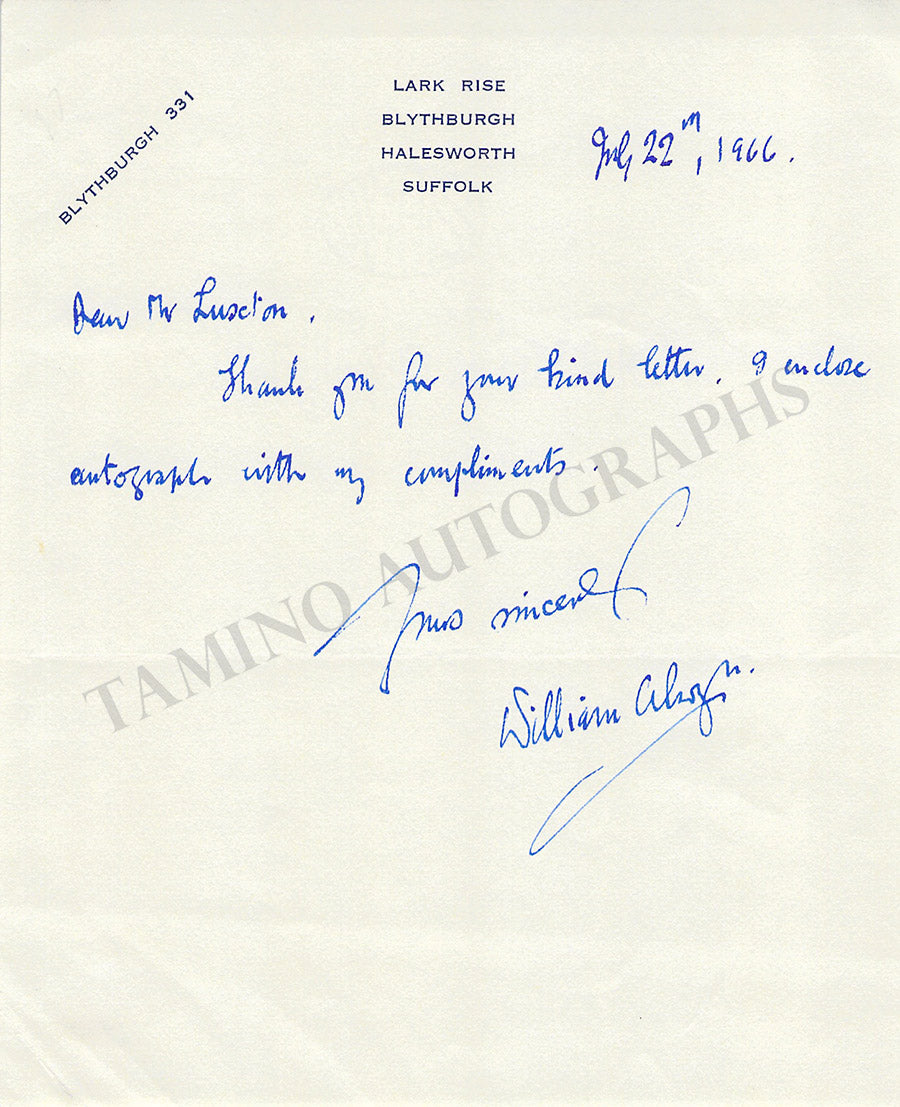 BLYTHBURGH 331
LARK RISE
BLYTHBURGH
HALESWORTH
SUFFOLK
July 22nd, 1966.
Dear Mr Luscton.
Thank you for your kind letter. I enclose
autograph with my compliments.
Yours sincerely
William Alwyn.
TAMINO AUTOGRAPHS